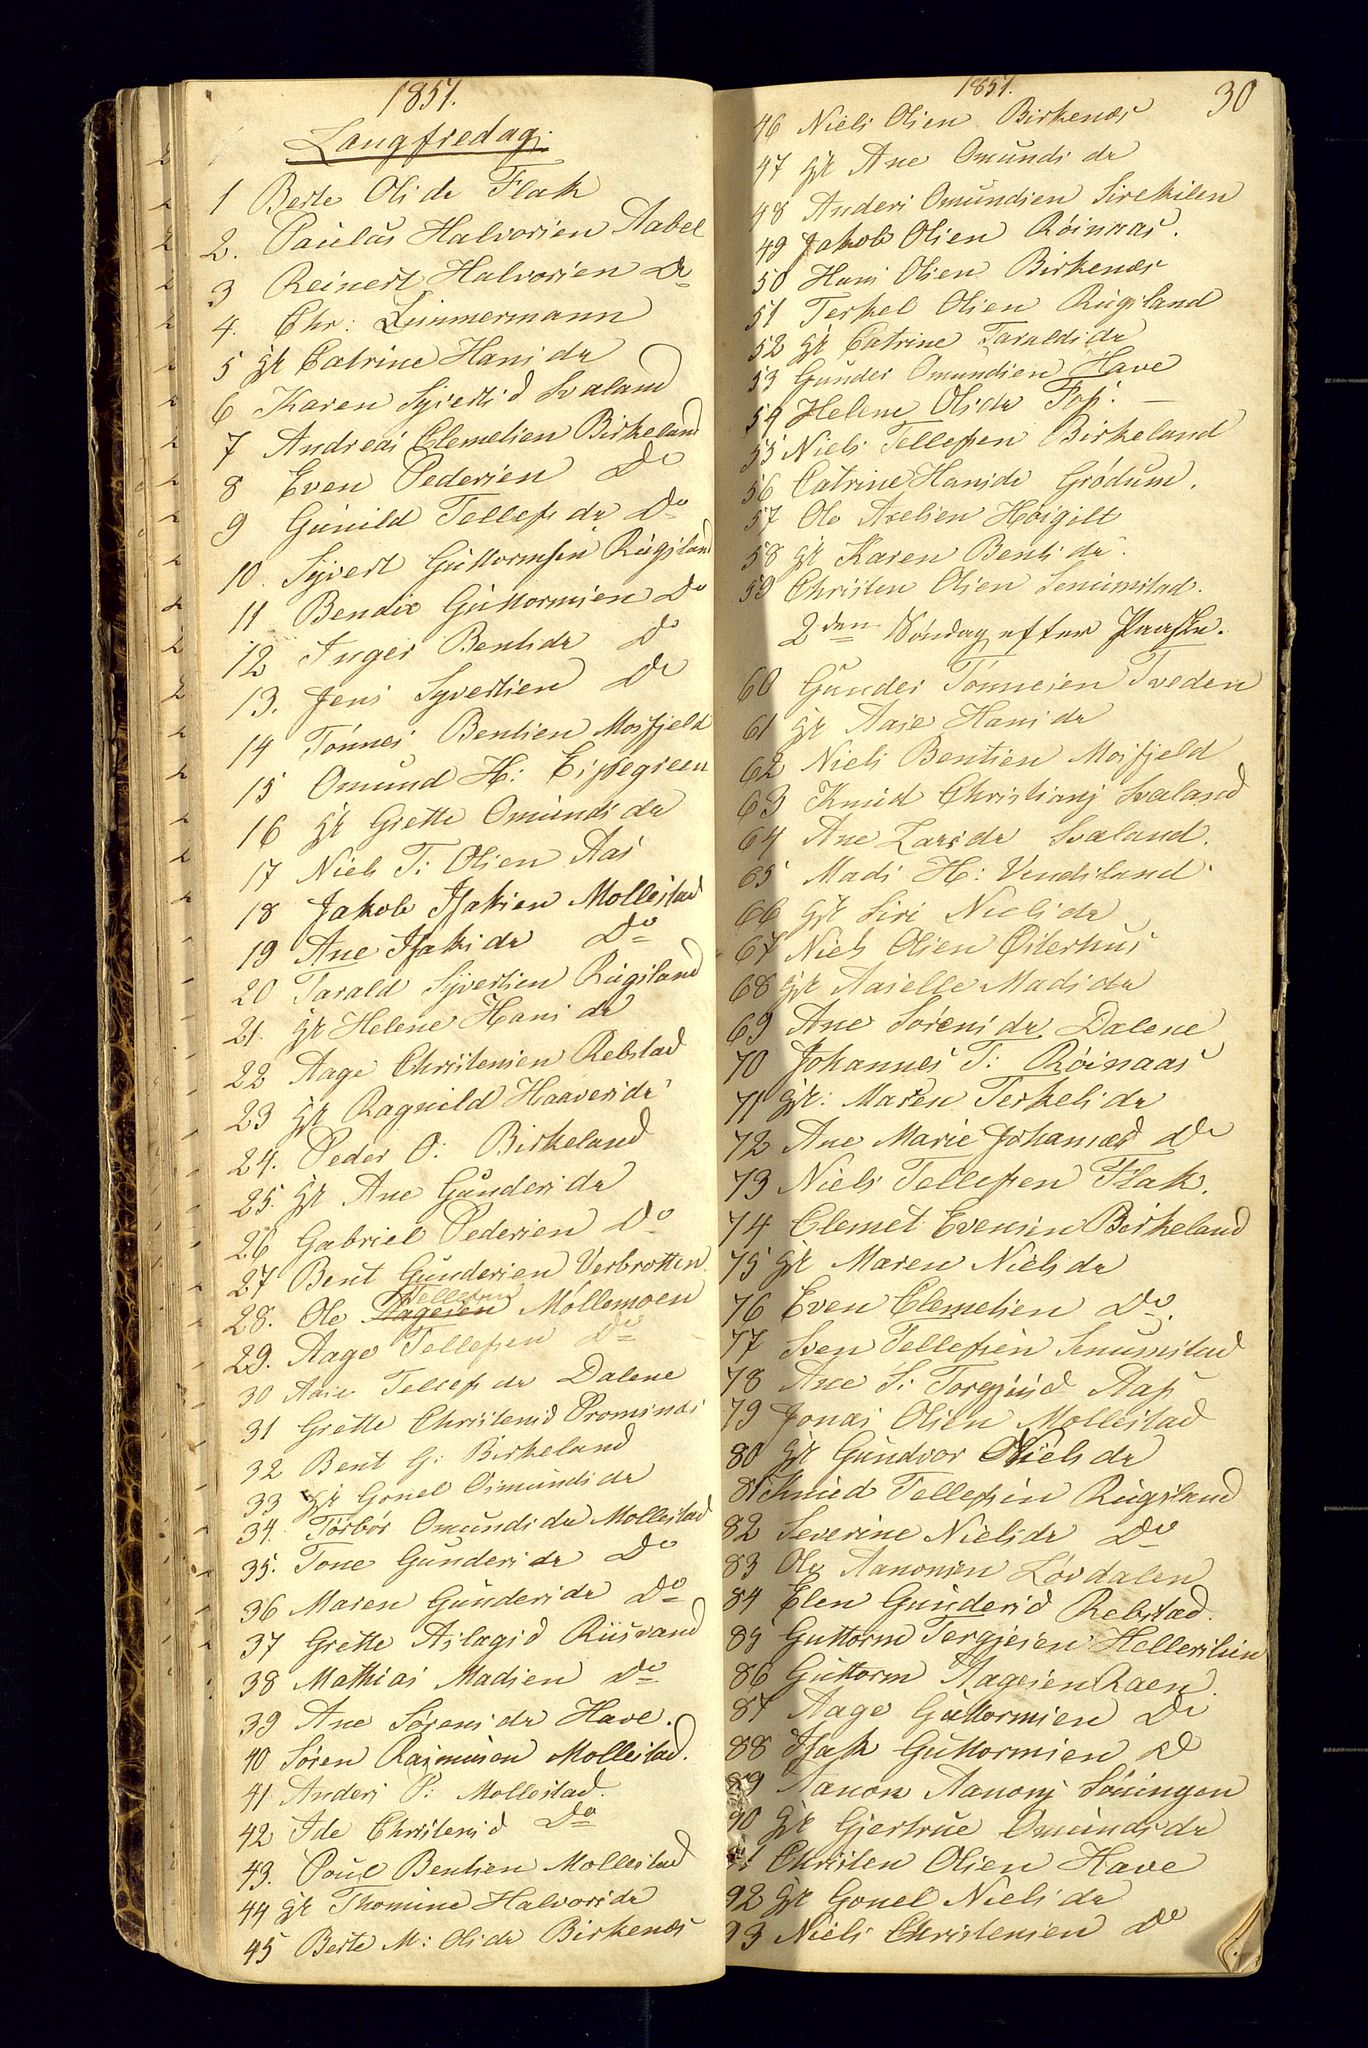 1851.
Langfredag.
1 Berte Olsdr Flak
2. Paulus Halvorsen Aabel
3 Reinert Halvorsen Do
4. Chr: Zimmermann
5 gk Catrine Hansdr
6 Karen Syvertsd Svaland
7 Andreas Clemetsen Birkeland
8 Even Pedersen Do
9 Gunild Tellefsdr Do
10. Syvert Guttormsen Rugsland
11 Bendix Guttormsen Do
12 Inger Bentsdr Do
13. Jens Syvertsen Do
14 Tönnes Bentsen Mosfjeld
15 Omund H: Eppegreen
16 gk Grette Omundsdr
17 Niels T: Olsen Aas
18 Jakob Isaksen Mollestad
19 Ane Isaksdr Do
20 Tarald Syvertsen Rugsland
21. gk Helene Hansdr
22 Aage Christensen Rebstad
23 gk Ragnild Haaversdr
24. Peder O: Birkeland
25. gk Ane Gundersdr
26 Gabriel Pedersen Do
27 Bent Gundersen Verbrotten
28. Ole Aagesen Tellefsen Möllemoen
29. Aage Tellefsen Do
30 Aase Tellefsdr Dalene
31 Grette Christensd Promsnds
32 Bent G: Birkeland
33 gk Gonel Osmundsdr
34. Torbör Omundsdr Mollestad
35. Tone Gundersdr Do
36 Maren Gundersdr Do
37 Grette Aslagsd Riisvand
38 Mathias Madsen Do
39 Ane Sörensdr Have.
40 Sören Rasmusen Mollestad.
41 Anders P: Mollestad.
42 Ide Christensd Do
43. Poul Bentsen Mollestad
44 gk Thomine Halvorsdr
45 Berte M: Olsdr Birkenæs
1851. 30
46 Niels Olsen Birkenæs
47 gk Ane Omundsdr
48 Anders Omundsen Sirekilen
49 Jakob Olsen Röinaas.
50 Hans Olsen Birkenæs
51 Terkel Olsen Rugsland
52 gk Catrine Taraldsdr
53 Gunder Omundsen Have
54 Helene Olsdr Fos.
55 Niels Tellefsen Birkeland
56 Catrine Hansdr Grödum.
57 Ole Axelsen Hoigilt
58 gk Karen Bentsdr.
59 Christen Olsen Senumstad.
2den Söndag efter Paaske.
60 Gunder Tönnesen Tveden
61 gk Aase Hansdr
62 Niels Bentsen Mosfjeld
63 Knud Christians Svaland
64 Ane Larsdr Svaland.
65 Mads H: Vendsland
66 gk Siri Nielsdr
67 Niels Olsen Østerhus
68 gk Aaselle Madsdr
69 Ane Sörensdr Dalene
70 Johannes T: Röinaas
71 gk: Maren Terkelsdr
72 Ane Marie Johansd Do
73 Niels Tellefsen Flak.
74 Clemet Evensen Birkeland
75 gk Maren Nielsdr
76 Even Clemetsen Do
77 Sven Tellefsen Senumstad
78 Ane S: Torgjusd Aas
79 Jonas Olsen Mollestad
80 gk Gundvor Nielsdr
81 Knud Tellefsen Rugsland
82 Severine Nielsdr Do
83 Ole Aanonsen Lövdalen
84 Elen Gundersd Rebstad.
85 Guttorm Tergjesen Hellerslien
86 Guttorm Aagesen Raen.
87 Aage Guttormsen Do
88 Isak Guttormsen Do
89 Aanon Aanons Söringen
90 gk Gjertrue Omundsdr
91 Christen Olsen Have
92 gk Gonel Nielsdr
93 Niels Christensen Do